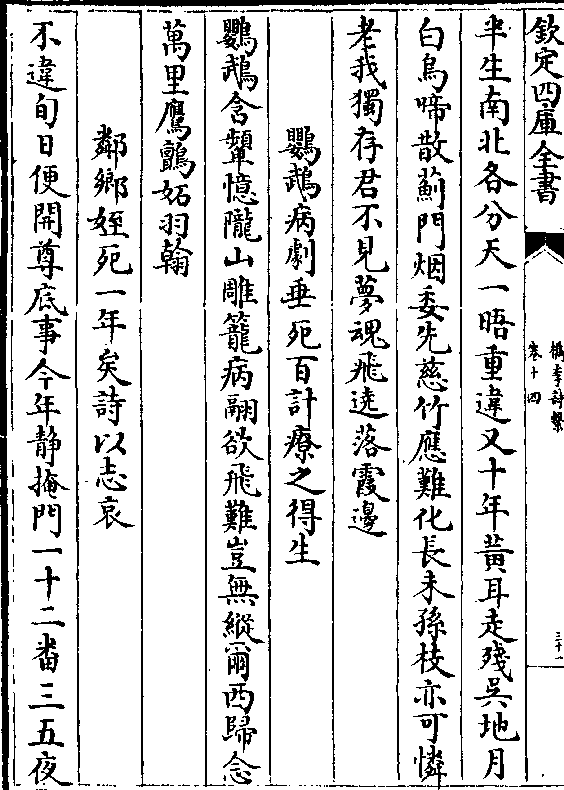 欽定四庫全書
檇李詩繫
卷十四
三十一
半生南北各分天一晤重違又十年黃耳走殘吳地月
白烏啼散薊門烟委先慈竹應難化長未孫枝亦可憐
老我獨存君不見夢魂飛遶落霞邊
鸚鵡病劇垂死百計療之得生
鸚鵡含顰憶隴山雕籠病翮欲飛難豈無縱爾西歸念
萬里鷹鸇妬羽翰
鄰鄉姪死一年矣詩以志哀
不違旬日便開尊底事今年静掩門一十二番三五夜